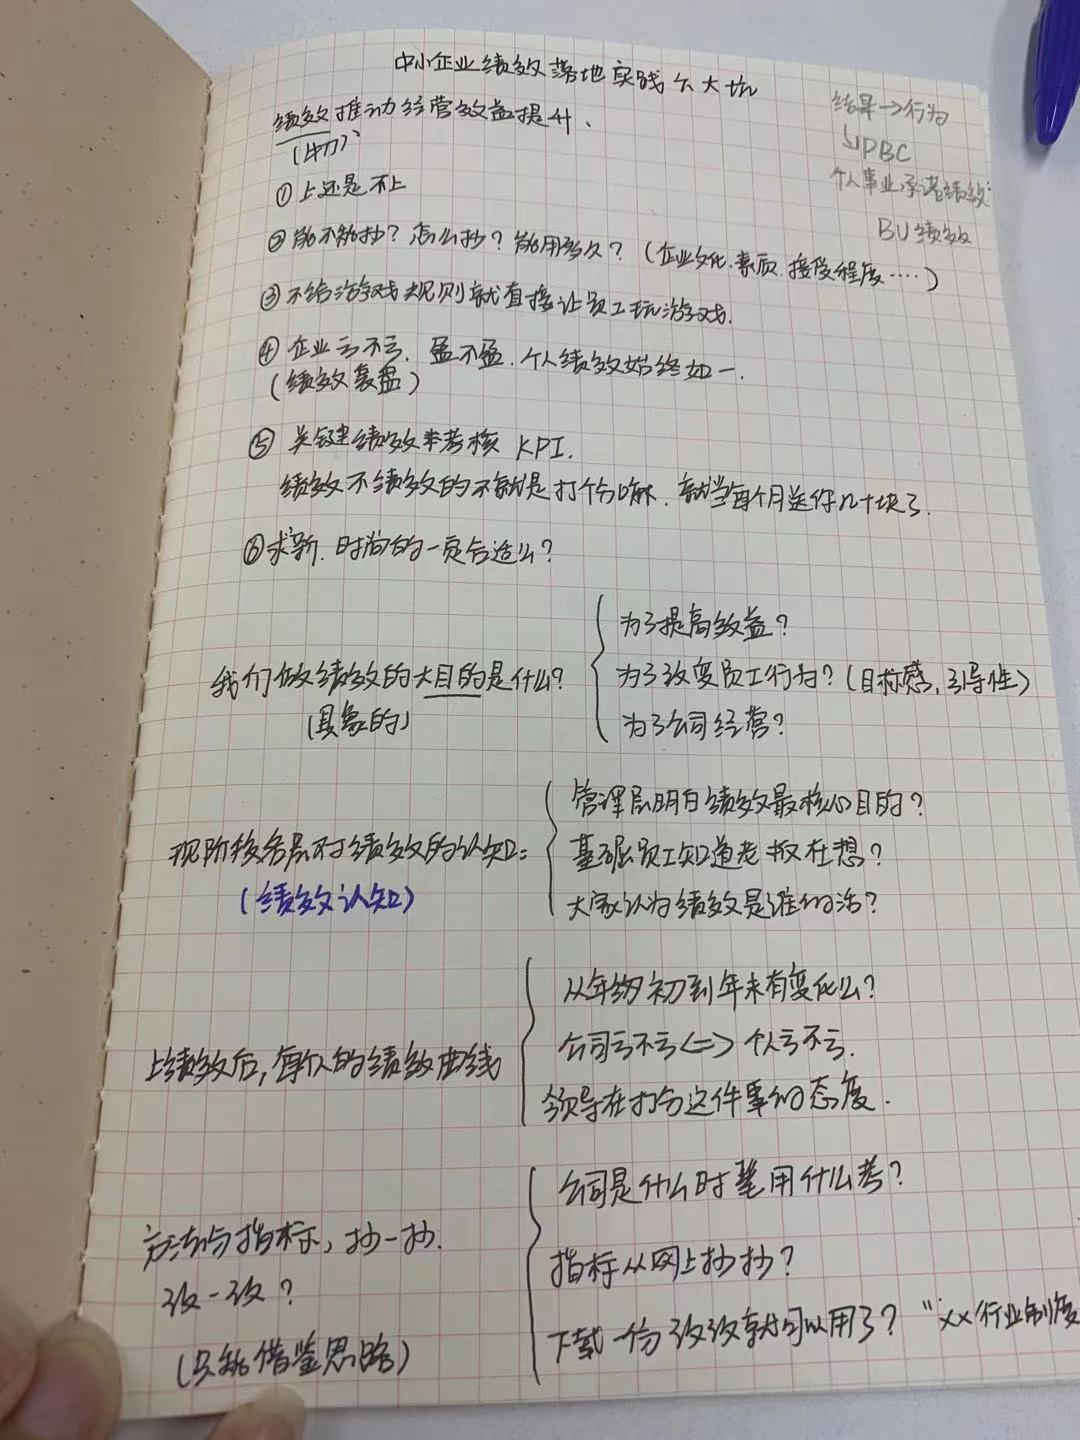 中小企业绩效落地实践六大坑
绩效推动经营效益提升、
(助力)
①上还是不上
②能不能抄？怎么抄？能用多久？(企业文化.素质.接受程度……)
③不给游戏规则就直接让员工玩游戏.
④企业亏不亏.盈不盈.个人绩效始终如一.
(绩效复盘)
⑤关键绩效率考核 KPI.
绩效不绩效的不就是打个分嘛.就当每个月送你几十块了.
⑥求新.时尚的一定合适么？
我们做绩效的大目的是什么？
(具象的)
为了提高效益？
为了改变员工行为？(目标感,引导性)
为了公司经营？
现阶段各层对绩效的认知:
(绩效认知)
管理层明白绩效最核心目的？
基础员工知道老板在想？
大家认为绩效是谁的活？
上绩效后,每个人的绩效曲线
从年初到年末有变化么？
公司亏不亏<=>个人亏不亏.
领导在打分这件事的态度.
方法与指标,抄一抄.
改一改？
(只能借鉴思路)
公司是什么时候用什么考？
指标从网上抄抄？
下载一份改改就可以用了？"xx行业制度
结果→行为
↳PBC
个人事业承诺绩效:
BU绩效